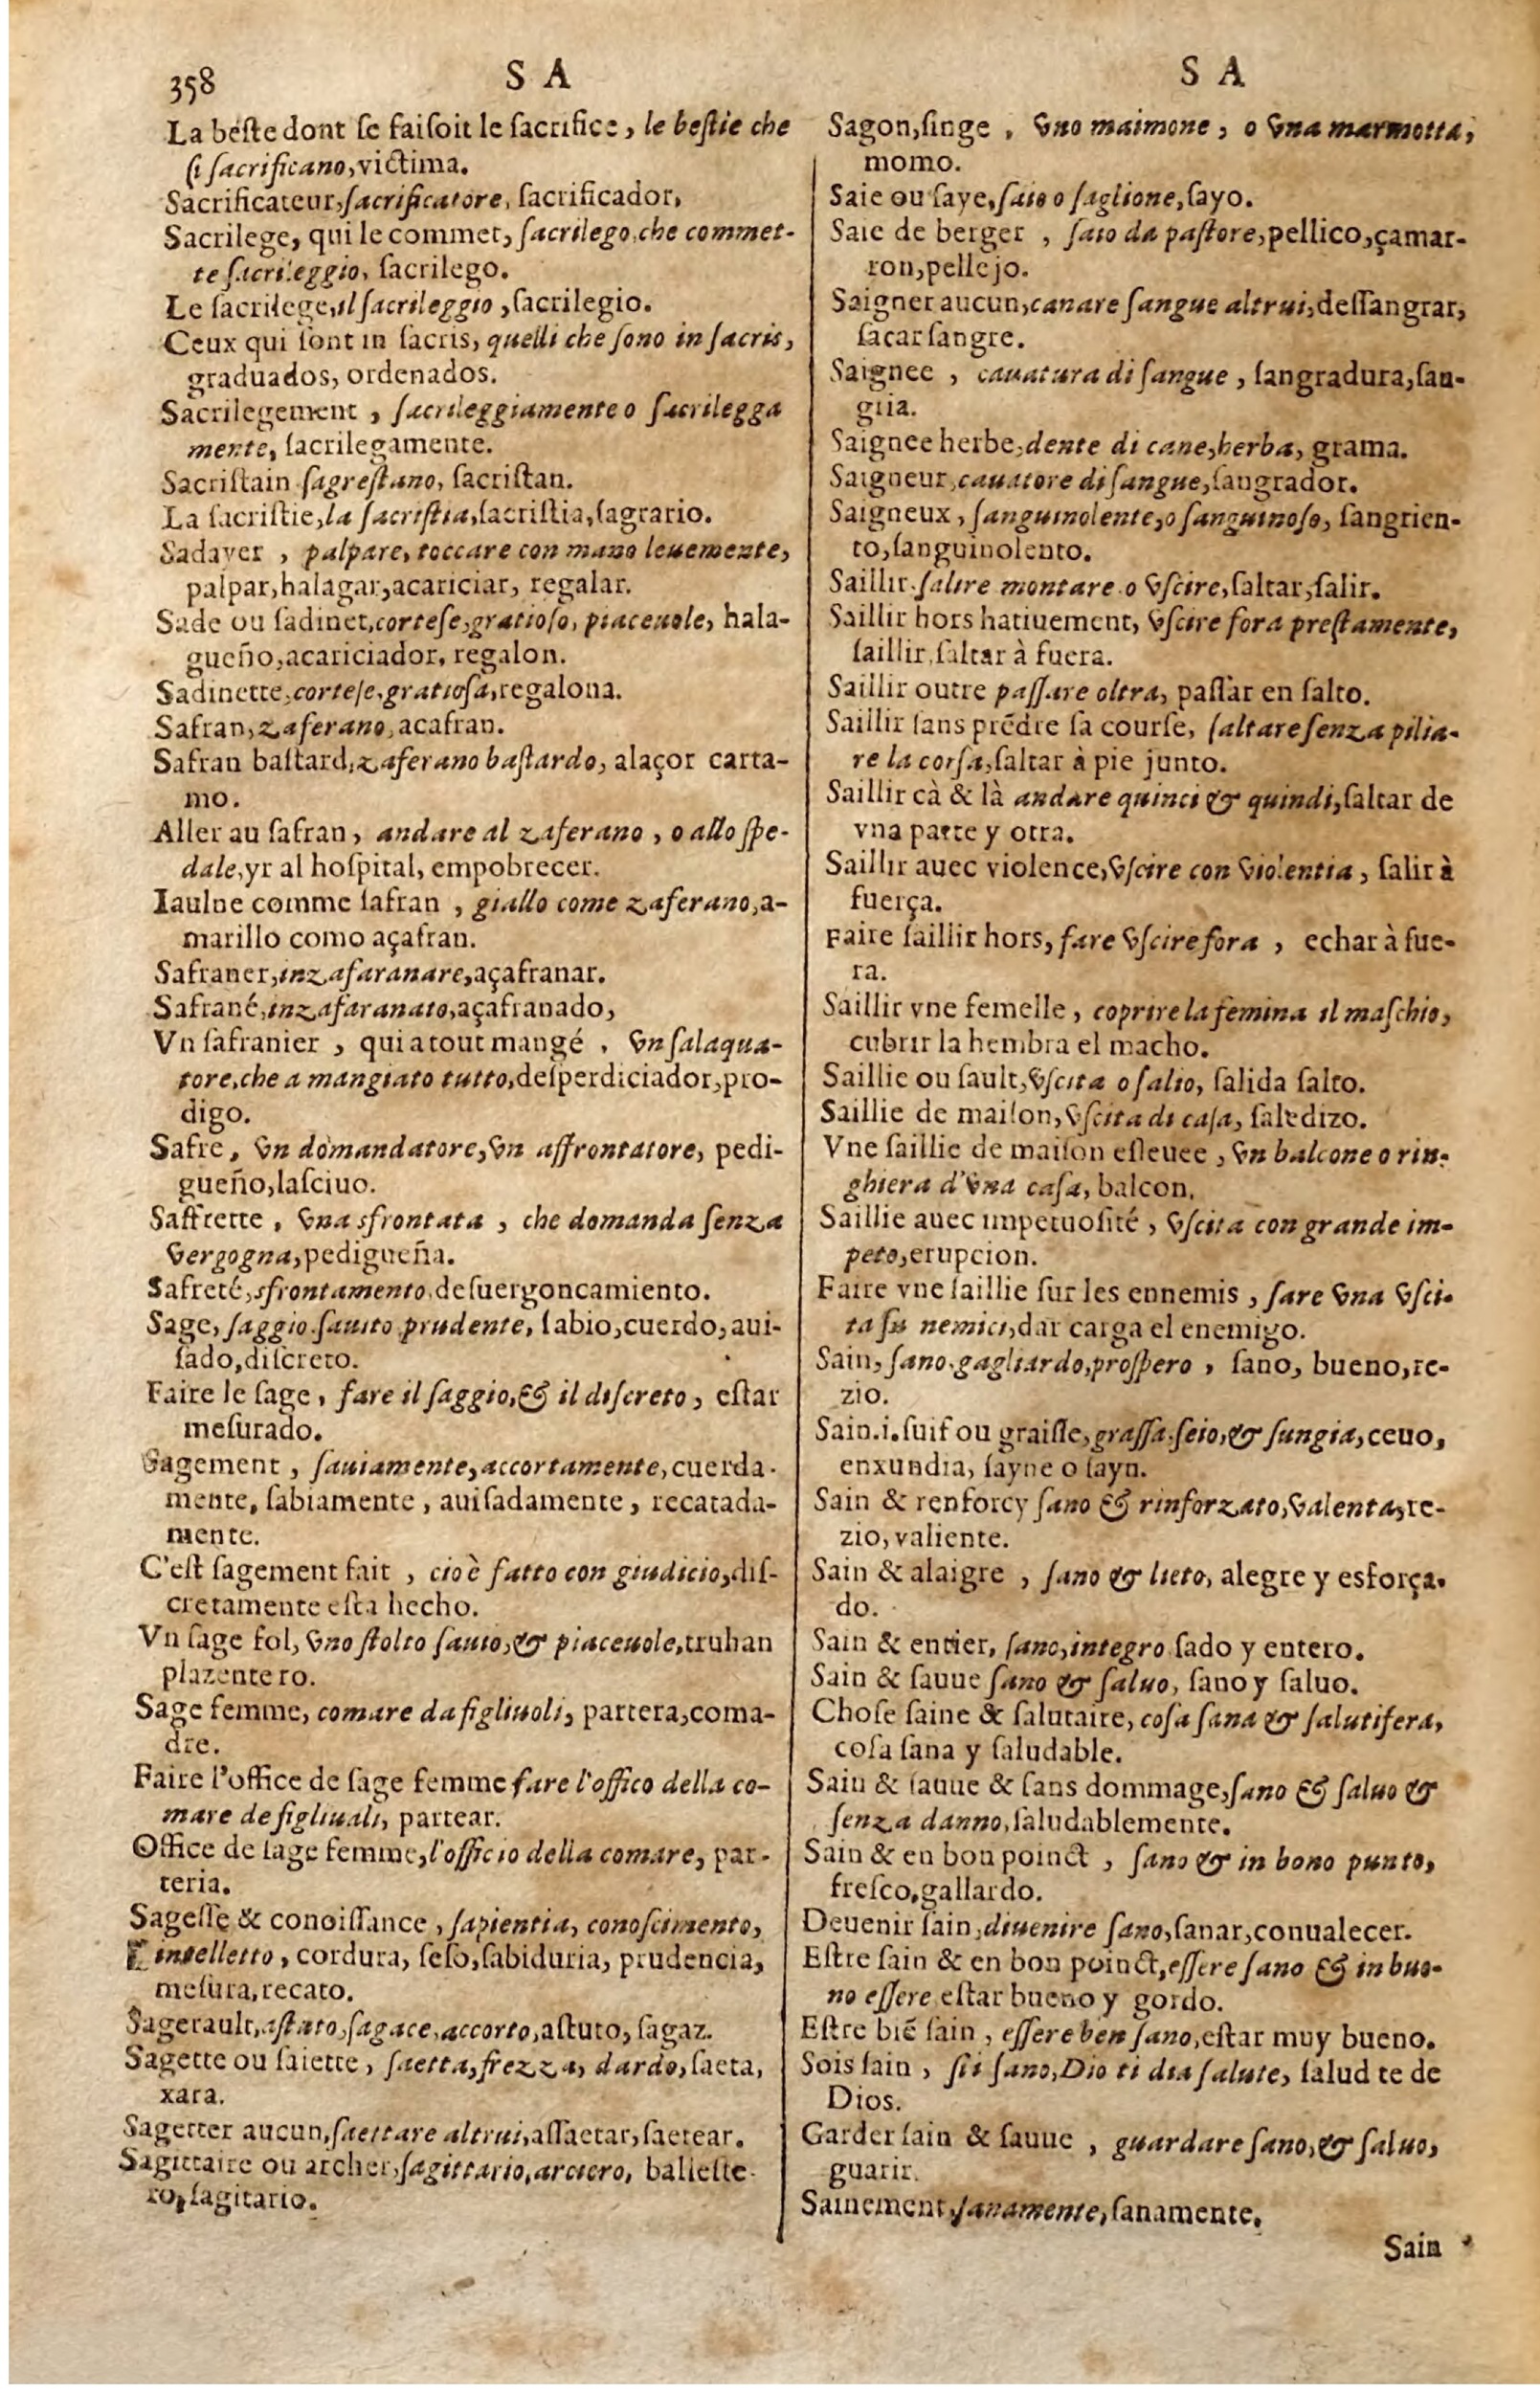 358
S A
La beſte dont ſe faiſoit le ſacrifice, le beſtie che
ſi ſacrificano, victima.
Sacrificateur, ſacrificatore, ſacrificador,
Sacrilege, qui le commet, ſacrilego, che commet-
te ſacrileggio, ſacrilego.
Le ſacrilege, il ſacrileggio, ſacrilegio.
Ceux qui ſont in ſacris, quelli che ſono in ſacris,
graduados, ordenados.
Sacrilegement, ſacrileggiamente o ſacrilegga
mente, ſacrilegamente.
Sacriſtain ſagreſtano, ſacriſtan.
La ſacriſtie, la ſacriſtia, ſacriſtia, ſagrario.
Sadayer, palpare, toccare con mano leuemente,
palpar, halagar, acariciar, regalar.
Sade ou ſadinet, corteſe, gratioſo, piaceuole, hala-
gueño, acariciador, regalon.
Sadinette, corteſe, gratioſa, regalona.
Safran, zaferano, acafran.
Safran baſtard, zaferano baſtardo, alaçor carta-
mo.
Aller au ſafran, andare al zaferano, o allo ſpe-
dale, yr al hoſpital, empobrecer.
Iaulne comme ſafran, giallo come zaferano, a-
marillo como açafran.
Safraner, inzafaranare, açafranar.
Safrané, inzafaranato, açafranado,
Vn ſafranier, qui a tout mangé, vn ſalaqua-
tore, che a mangiato tutto, deſperdiciador, pro-
digo.
Safre, vn domandatore, vn affrontatore, pedi-
gueño, laſciuo.
Saffrette, vna sfrontata, che domanda ſenza
vergogna, pedigueña.
Safreté, sfrontamento, deſuergoncamiento.
Sage, ſaggio ſauito prudente, ſabio, cuerdo, aui-
ſado, diſcreto.
Faire le ſage, fare il ſaggio, & il diſcreto, eſtar
meſurado.
Sagement, ſauiamente, accortamente, cuerda-
mente, ſabiamente, auiſadamente, recatada-
mente.
C'eſt ſagement fait, cio è fatto con giudicio, diſ-
cretamente eſta hecho.
Vn ſage fol, vno ſtolto ſauio, & piaceuole, truhan
plazentero.
Sage femme, comare da figliuoli, partera, coma-
dre.
Faire l'office de ſage femme fare l'offico della co-
mare de figliuali, partear.
Office de ſage femme, l'officio della comare, par-
teria.
Sageſſe & conoiſſance, ſapientia, conoſcimento,
intelletto, cordura, ſeſo, ſabiduria, prudencia,
meſura, recato.
Sagerault, aſtuto, ſagace, accorto, aſtuto, ſagaz.
Sagette ou ſaiette, ſaetta, frezza, dardo, ſaeta,
xara.
Sagetter aucun, ſaettare altrui, aſſaetar, ſaetear.
Sagittaire ou archer, ſagittario, arciero, balleſte-
ro, ſagitario.
S A
Sagon, ſinge, vno maimone, o vna marmotta,
momo.
Saie ou ſaye, ſaio o ſaglione, ſayo.
Saie de berger, ſaio da paſtore, pellico, çamar-
ron, pellejo.
Saigner aucun, canare ſangue altrui, deſſangrar,
ſacar ſangre.
Saignee, cauatura di ſangue, ſangradura, ſan-
gria.
Saignee herbe, dente di cane, herba, grama.
Saigneur, cauatore di ſangue, ſangrador.
Saigneux, ſanguinolente, o ſanguinoſo, ſangrien-
to, ſanguinolento.
Saillir ſalire montare o vſcire, ſaltar, ſalir.
Saillir hors hatiuement, vſcire fora preſtamente,
ſaillir, ſaltar à fuera.
Saillir outre paſſare oltra, paſſar en ſalto.
Saillir ſans prẽdre ſa courſe, ſaltare ſenza pilia-
re la corſa, ſaltar à pie junto.
Saillir cà & là andare quinci & quindi, ſaltar de
vna parte y otra.
Saillir auec violence, vſcire con violentia, ſalir à
fuerça.
Faire ſaillir hors, fare vſcire fora, echar à fue-
ra.
Saillir vne femelle, coprire la femina il maſchio,
cubrir la hembra el macho.
Saillie ou ſault, vſcita o ſalto, ſalida ſalto.
Saillie de maiſon, vſcita di caſa, ſaledizo.
Vne ſaillie de maiſon eſleuee, vn balcone o rin-
ghiera d'vna caſa, balcon.
Saillie auec impetuoſité, vſcita con grande im-
peto, erupcion.
Faire vne ſaillie ſur les ennemis, fare vna vſci-
ta ſu nemici, dar carga el enemigo.
Sain, ſano, gagliardo, proſpero, ſano, bueno, re-
zio.
Sain.i. ſuif ou graiſſe, graſſa, ſeio, & ſungia, ceuo,
enxundia, ſayne o ſayn.
Sain & renforcy ſano & rinforzato, valenta, re-
zio, valiente.
Sain & alaigre, ſano & lieto, alegre y esforça-
do.
Sain & entier, ſano, integro ſado y entero.
Sain & ſauue ſano & ſaluo, ſano y ſaluo.
Choſe ſaine & ſalutaire, coſa ſana & ſalutifera,
coſa ſana y ſaludable.
Sain & ſauue & ſans dommage, ſano & ſaluo &
ſenza danno, ſaludablemente.
Sain & en bon poinct, ſano & in bono punto,
freſco, gallardo.
Deuenir ſain, diuenire ſano, ſanar, conualecer.
Eſtre ſain & en bon poinct, eſſere ſano & in buo-
no eſſere eſtar bueno y gordo.
Eſtre biẽ ſain, eſſere ben ſano, eſtar muy bueno.
Sois ſain, ſii ſano, Dio ti dia ſalute, ſalud te de
Dios.
Garder ſain & ſauue, guardare ſano, & ſaluo,
guarir.
Sainement, ſanamente, ſanamente.
Sain